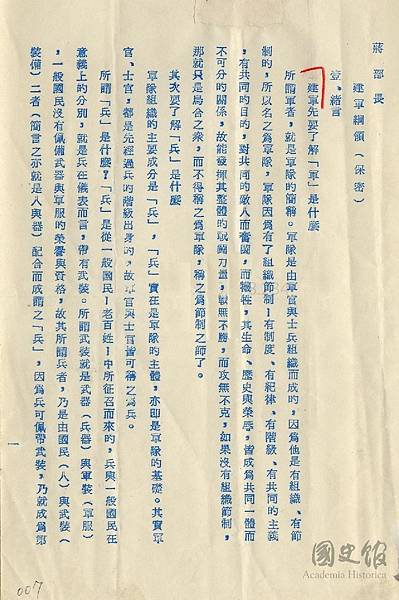 蔣部長
建軍綱領(保密)
壹、緒言
建軍先要了解「軍」是什麼
所謂軍者,就是軍隊的簡稱。軍隊是由軍官與士兵組織而成的,因爲他是有組織、有節
制的,所以名之爲軍隊,軍隊因爲有了組織節制—有制度、有紀律、有階級、有共同的主義
,有共同的目的,對共同的敵人而奮鬪,而犧牲,其生命、歷史與榮辱,皆成爲共同一體而
不可分的關係,故能發揮其整個的戰鬪力量,戰無不勝,而攻無不克,如果沒有組織節制,
那就只是烏合之衆,而不得稱之爲軍隊,稱之爲節制之師了。
其次要了解「兵」是什麼
軍隊組織的主要成分是「兵」,「兵」實在是軍隊的主體,亦卽是軍隊的基礎。其實軍
官、士官,都是先經過兵的階級出身的,故軍官與士官皆可稱之爲兵。
所謂「兵」是什麼?「兵」是從一般國民—老百姓—中所征召而來的,兵與一般國民在
意義上的分別,就是兵在儀表而言,帶有武裝。所謂武裝就是武器(兵器)與軍裝(軍服)
,一般國民沒有佩備武器與軍服的榮譽與資格,故其所謂兵者,乃是由國民(人)與武裝(
裝備)二者(簡言之亦就是人與器)配合而成謂之「兵」,因爲兵可佩帶武裝,乃就成爲第
一
007
國史館
Academia Historica